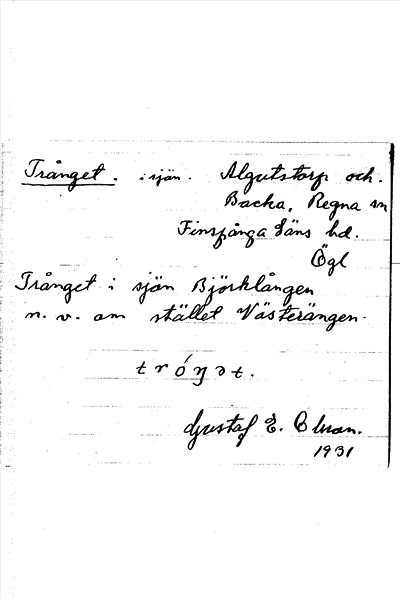 Trånget. i sjön. Algutstorp och.
Backa, Regna sn
Finspånga läns hd.
Ögl
Trånget i sjön Björklången
n. v. om stället Västerängen.
t r ó ŋ ə t.
Gustaf E.
1931